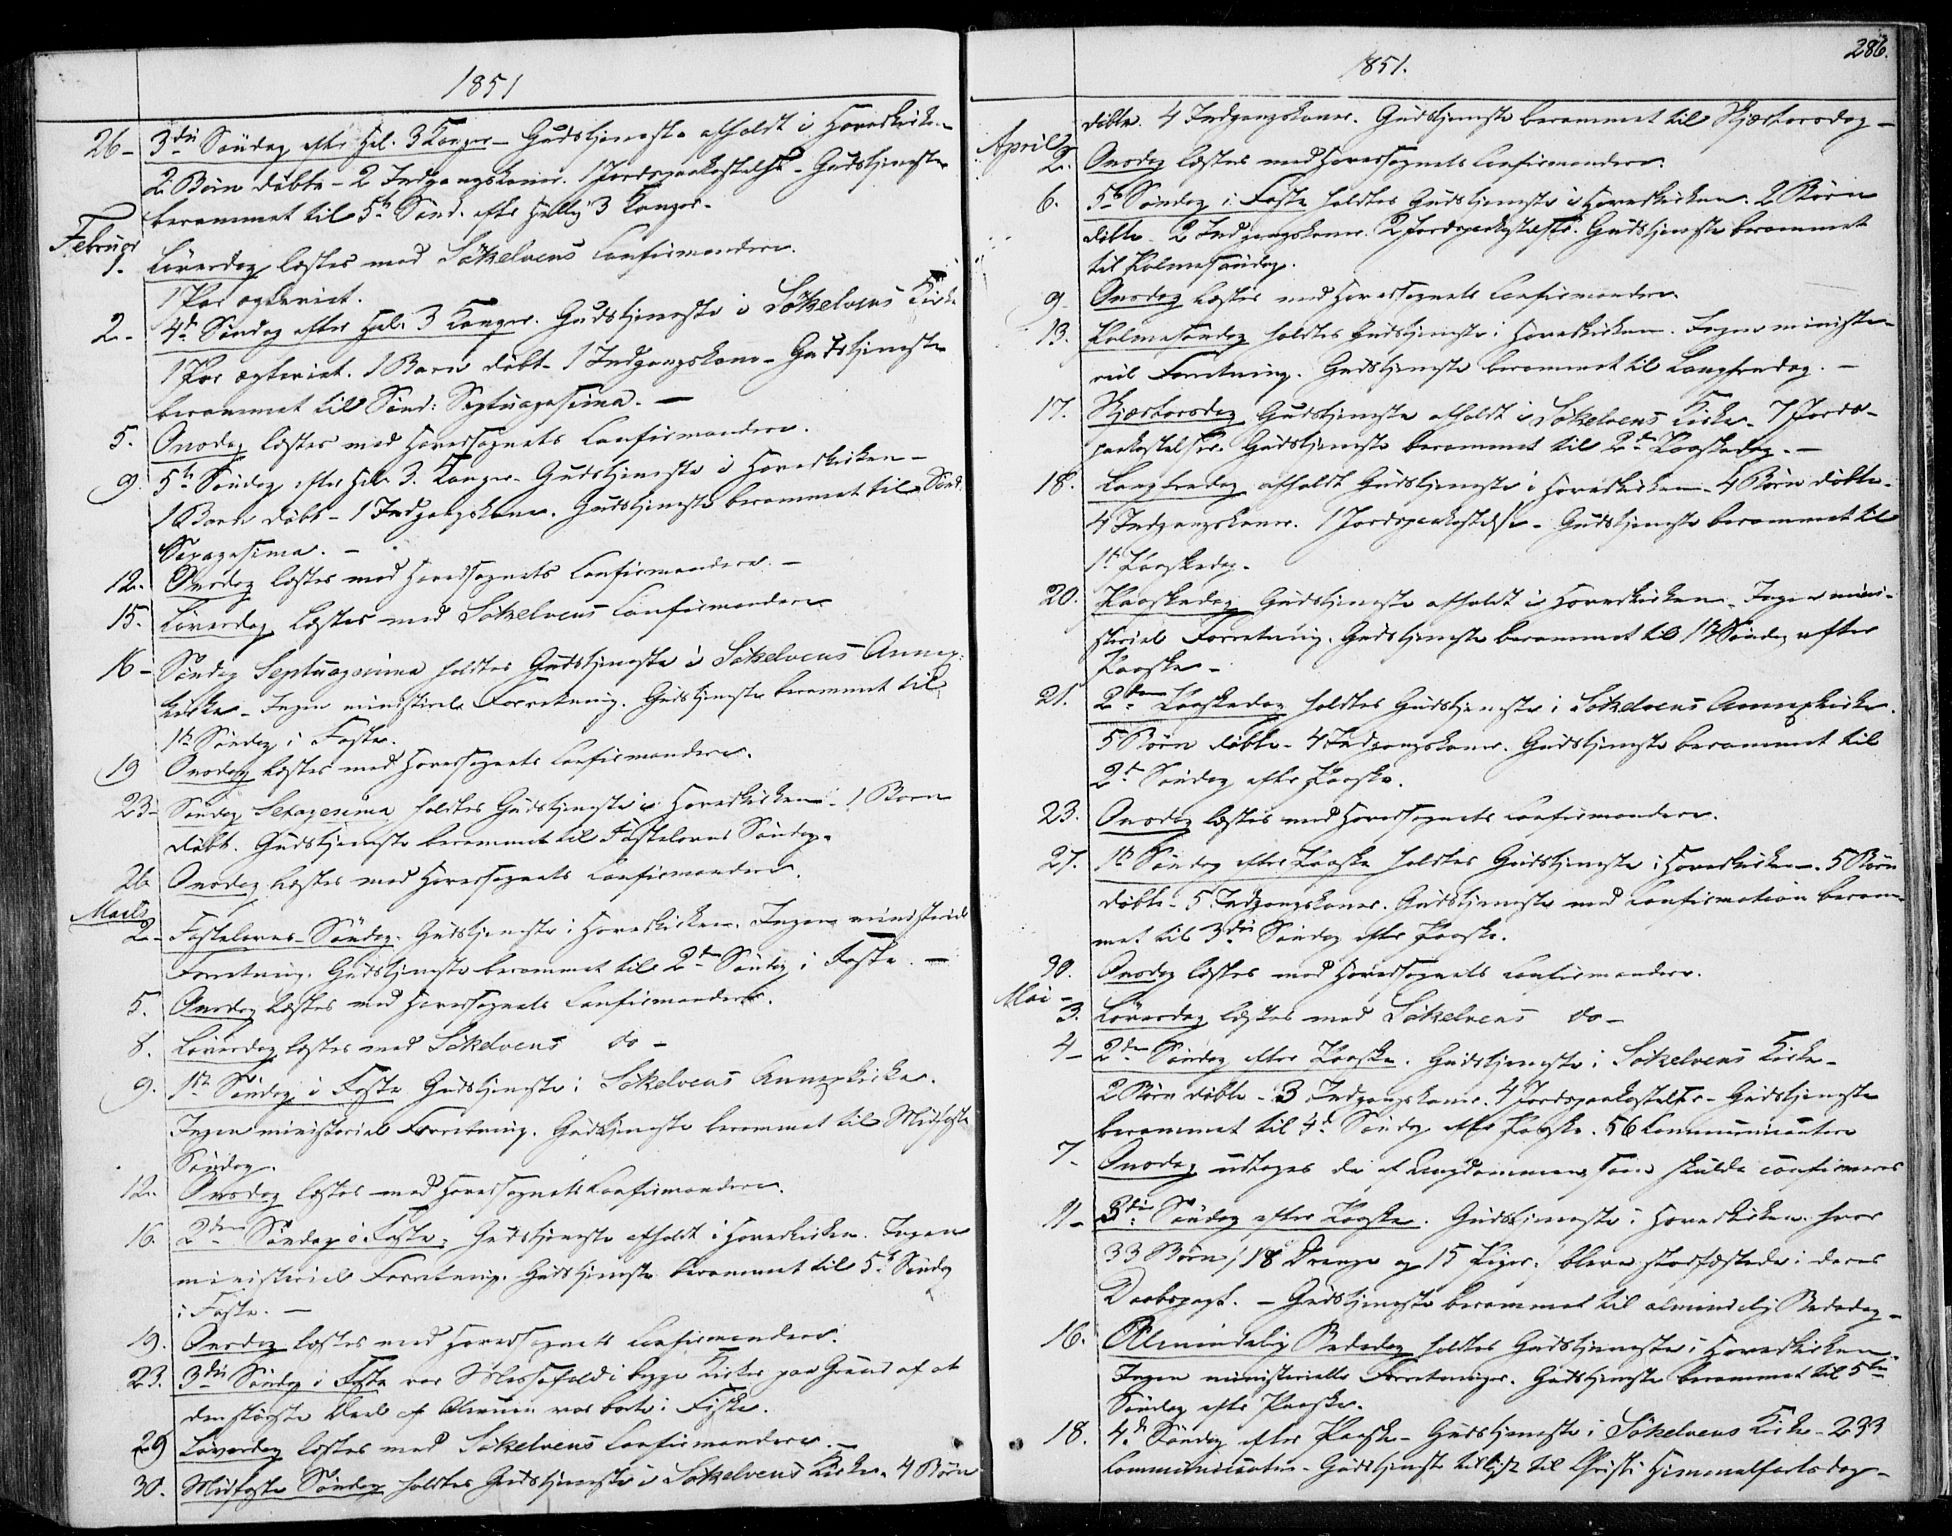 1851
26 - 3die Söndag efter Hel. 3 Konger - Gudstjeneste afholdt i Hovedkirken -
2 Börn döbte - 2 Indgangskoner. 1 Jordspaakastelse - Gudstjeneste
berammet til 5te Sönd. efter Hellig 3 Konger -
Februar
1. Löverdag læstes med Sökelvens Confirmander.
1 Par ægteviet.
2 - 4de Söndag efter Hel. 3 Konger. Gudstjeneste i Sökelvens Kirke
1 Par ægteviet. 1 Barn döbt - 1 Indgangskone - Gudstjeneste
berammet til Sönd: Septuagesima. -
5. Onsdag læstes med Hovedsognets Confirmander.
9. 5te Söndag efter Hel. 3. Konger - Gudstjeneste i Hovedkirken -
1 Barn döbt - 1 Indgangskone. Gudstjeneste berammet til Sönd.
Sexagesima. -
12. Onsdag læstes med Hovedsognets Confirmander. -
15. Löverdag læstes med Sökelvens Confirmander.
16 - Söndag Septuagesima holdtes Gudstjeneste i Sökelvens Annex-
kirke - Ingen ministeriel Forretning. Gudstjeneste berammet til
1ste Söndag i Faste.
19 Onsdag læstes med Hovedsognets Confirmander.
23 - Söndag Sexagesima holdtes Gudstjeneste i Hovedkirken - 1 Barn
döbt. Gudstjeneste berammet til Fastelavns Söndag.
26 Onsdag læstes med Hovedsognets Confirmander.
Marts
2 - Fastelavns-Söndag. Gudstjeneste i Hovedkirken. Ingen ministeriel
Forretning. Gudstjeneste berammet til 2den Söndag i Faste. -
5. Onsdag læstes med Hovedsognets Confirmander.
8. Löverdag læstes med Sökelvens do -
9. 1ste Söndag i Faste Gudstjeneste i Sökelvens Annexkirke.
Ingen ministeriel Forretning. Gudstjeneste berammet til Midfaste
Söndag.
12. Onsdag læstes med Hovedsognets Confirmander.
16. 2den Söndag i Faste. Gudstjeneste afholdt i Hovedkirken. Ingen
ministeriel Forretning. Gudstjeneste berammet til 5te Söndag
i Faste. -
19. Onsdag læstes med Hovedsognets Confirmander.
23. 3die Söndag i Faste var Messefald i begge Kirker paa Grund af at
den største Deel af Almuen var borte i Fiske.
29 Löverdag læstes med Sökelvens Confirmander. -
30. Midfaste Söndag holdtes Gudstjeneste i Sökelvens Kirke. 4 Börn
1851.
286.
döbte. 4 Indgangskoner. Gudstjeneste berammet til Skjærtorsdag -
April
2. Onsdag læstes med Hovedsognets Confirmander.
6. 5te Söndag i Faste holdtes Gudstjeneste i Hovedkirken. 2 Börn
döbte - 2 Indgangskoner. 2 Jordspaakastelser. Gudstjeneste berammet
til Palmesöndag.
9. Onsdag læstes med Hovedsognets Confirmander.
13. Palmesöndag holdtes Gudstjeneste i Hovedkirken. Ingen ministe-
riel Forretning. Gudstjeneste berammet til Langfredag. -
17. Skjærtorsdag Gudstjeneste afholdt i Sökelvens Kirke - 7 Jords-
paakastelser. Gudstjeneste berammet til 2den Paaskedag. -
18. Langfredag afholdt Gudstjeneste i Hovedkirken - 4 Börn döbte -
4 Indgangskoner. 1 Jordspaakastelse - Gudstjeneste berammet til
1ste Paaskedag.
20. Paaskedag Gudstjeneste afholdt i Hovedkirken. Ingen mini-
steriel Forretning. Gudstjeneste berammet til 1ste Söndag efter
Paaske -
21. 2den Paaskedag holdtes Gudstjeneste i Sökelvens Annexkirke.
5 Börn döbte - 4 Indgangskoner. Gudstjeneste berammet til
2den Söndag efter Paaske.
23. Onsdag læstes med Hovedsognets Confirmander.
27. 1ste Söndag efter Paaske holdtes Gudstjeneste i Hovedkirken. 5 Börn
döbte - 5 Indgangskoner. Gudstjeneste med Confirmation beram-
met til 3die Söndag efter Paaske.
30. Onsdag læstes med Hovedsognets Confirmander.
Mai -
3. Löverdag læstes med Sökelvens do -
4 - 2den Söndag efter Paaske. Gudstjeneste i Sökelvens Kirke -
2 Börn döbte - 3 Indgangskoner. 4 Jordspaakastelser - Gudstjeneste
berammet til 4de Söndag efter Paaske. 56 Communicanter
7. Onsdag udtoges de af Ungdommen, som skulde confirmeres
11 - 3die Söndag efter Paaske. Gudstjeneste i Hovedkirken hvor
33 Börn / 18 Drenge og 15 Piger / bleve stadfæstede i deres
Daabspagt. - Gudstjeneste berammet til almindelig Bededag -
16. Almindelig Bededag holdtes Gudstjeneste i Hovedkirken.
Ingen ministerielle Forretninger. Gudstjeneste berammet til 5te
Söndag efter Paaske.
18. 4de Söndag efter Paaske - Gudstjeneste i Sökelvens Kirke - 233
Communicanter - Gudstjeneste tillyst til Christi Himmelfartsdag -